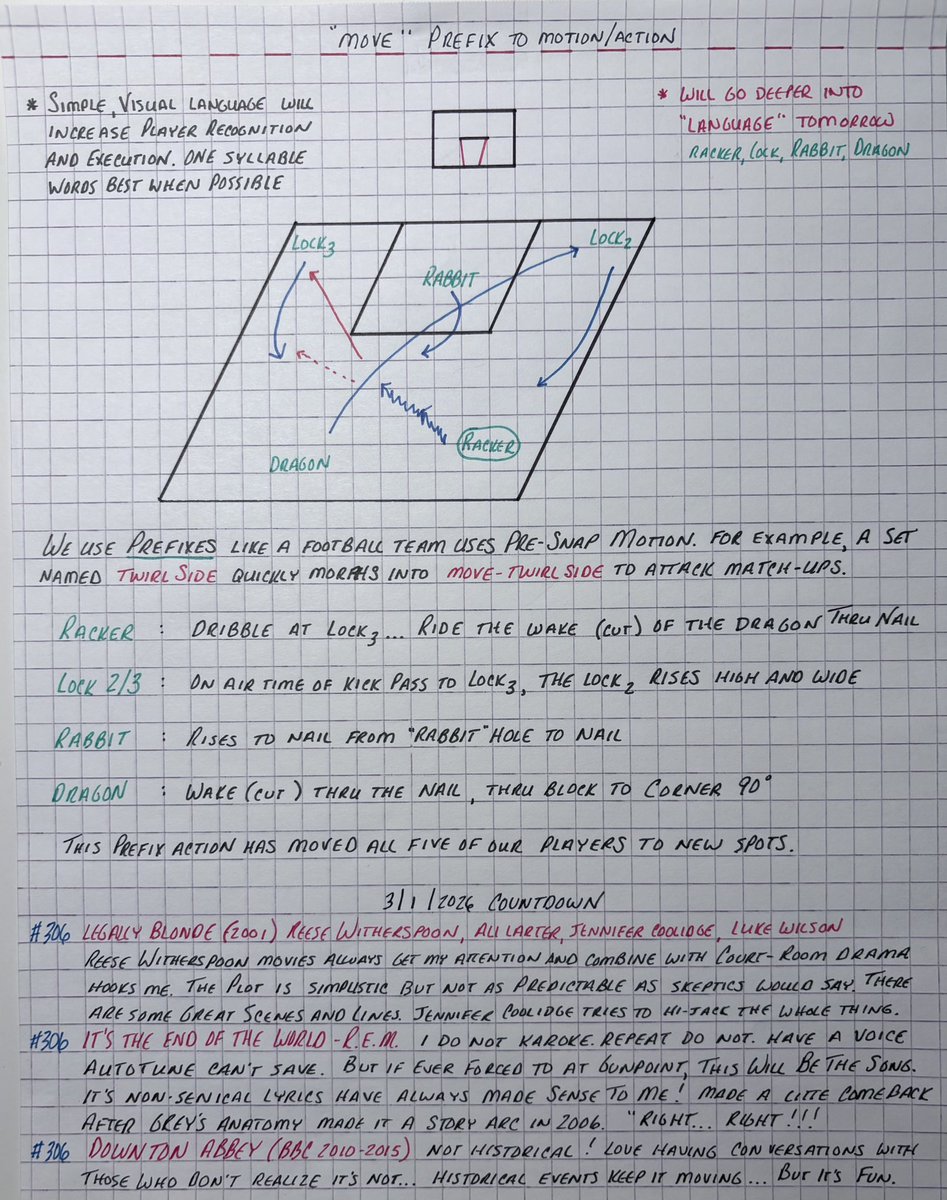 "MOVE" PREFIX TO MOTION/ACTION
* SIMPLE, VISUAL LANGUAGE WILL
INCREASE PLAYER RECOGNITION
AND EXECUTION. ONE SYLLABLE
WORDS BEST WHEN POSSIBLE
* WILL GO DEEPER INTO
"LANGUAGE" TOMORROW
RACKER, LOCK, RABBIT, DRAGON
LOCK3
LOCK2
RABBIT
RACKER
DRAGON
WE USE PREFIXES LIKE A FOOTBALL TEAM USES PRE-SNAP MOTION. FOR EXAMPLE, A SET
NAMED TWIRL SIDE QUICKLY MORPHS INTO MOVE-TWIRL SIDE TO ATTACK MATCH-UPS.
RACKER : DRIBBLE AT LOCK3... RIDE THE WAKE (CUT) OF THE DRAGON THRU NAIL
LOCK 2/3 : ON AIR TIME OF KICK PASS TO LOCK3, THE LOCK2 RISES HIGH AND WIDE
RABBIT : RISES TO NAIL FROM "RABBIT" HOLE TO NAIL
DRAGON : WAKE (CUT) THRU THE NAIL, THRU BLOCK TO CORNER 90°
THIS PREFIX ACTION HAS MOVED ALL FIVE OF OUR PLAYERS TO NEW SPOTS.
3/1/2026 COUNTDOWN
#306 LEGALLY BLONDE (2001) REESE WITHERSPOON, ALI LARTER, JENNIFER COOLIDGE, LUKE WILSON
REESE WITHERSPOON MOVIES ALWAYS GET MY ATTENTION AND COMBINE WITH COURT-ROOM DRAMA
HOOKS ME. THE PLOT IS SIMPLISTIC BUT NOT AS PREDICTABLE AS SKEPTICS WOULD SAY. THERE
ARE SOME GREAT SCENES AND LINES. JENNIFER COOLIDGE TRIES TO HI-JACK THE WHOLE THING.
#306 IT'S THE END OF THE WORLD - R.E.M. I DO NOT KAROKE. REPEAT DO NOT. HAVE A VOICE
AUTOTUNE CAN'T SAVE. BUT IF EVER FORCED TO AT GUNPOINT, THIS WILL BE THE SONG.
IT'S NON-SENICAL LYRICS HAVE ALWAYS MADE SENSE TO ME! MADE A LITTE COMEBACK
AFTER GREY'S ANATOMY MADE IT A STORY ARC IN 2006. "RIGHT... RIGHT!!!
#306 DOWNTON ABBEY (BBC 2010-2015) NOT HISTORICAL! LOVE HAVING CONVERSATIONS WITH
THOSE WHO DON'T REALIZE IT'S NOT... HISTORICAL EVENTS KEEP IT MOVING... BUT IT'S FUN.